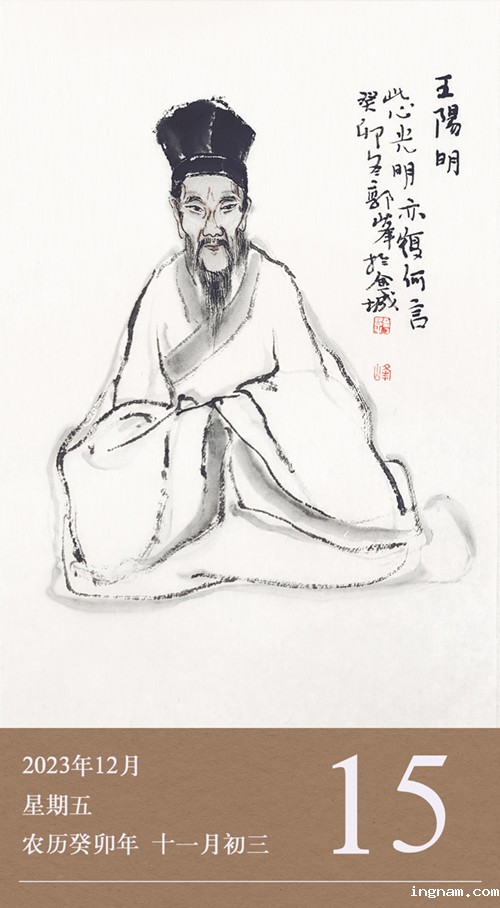 王陽明
此心光明亦復何言
癸卯冬郭峰於金城
2023年12月
星期五
农历癸卯年 十一月初三
15
ingnam.com